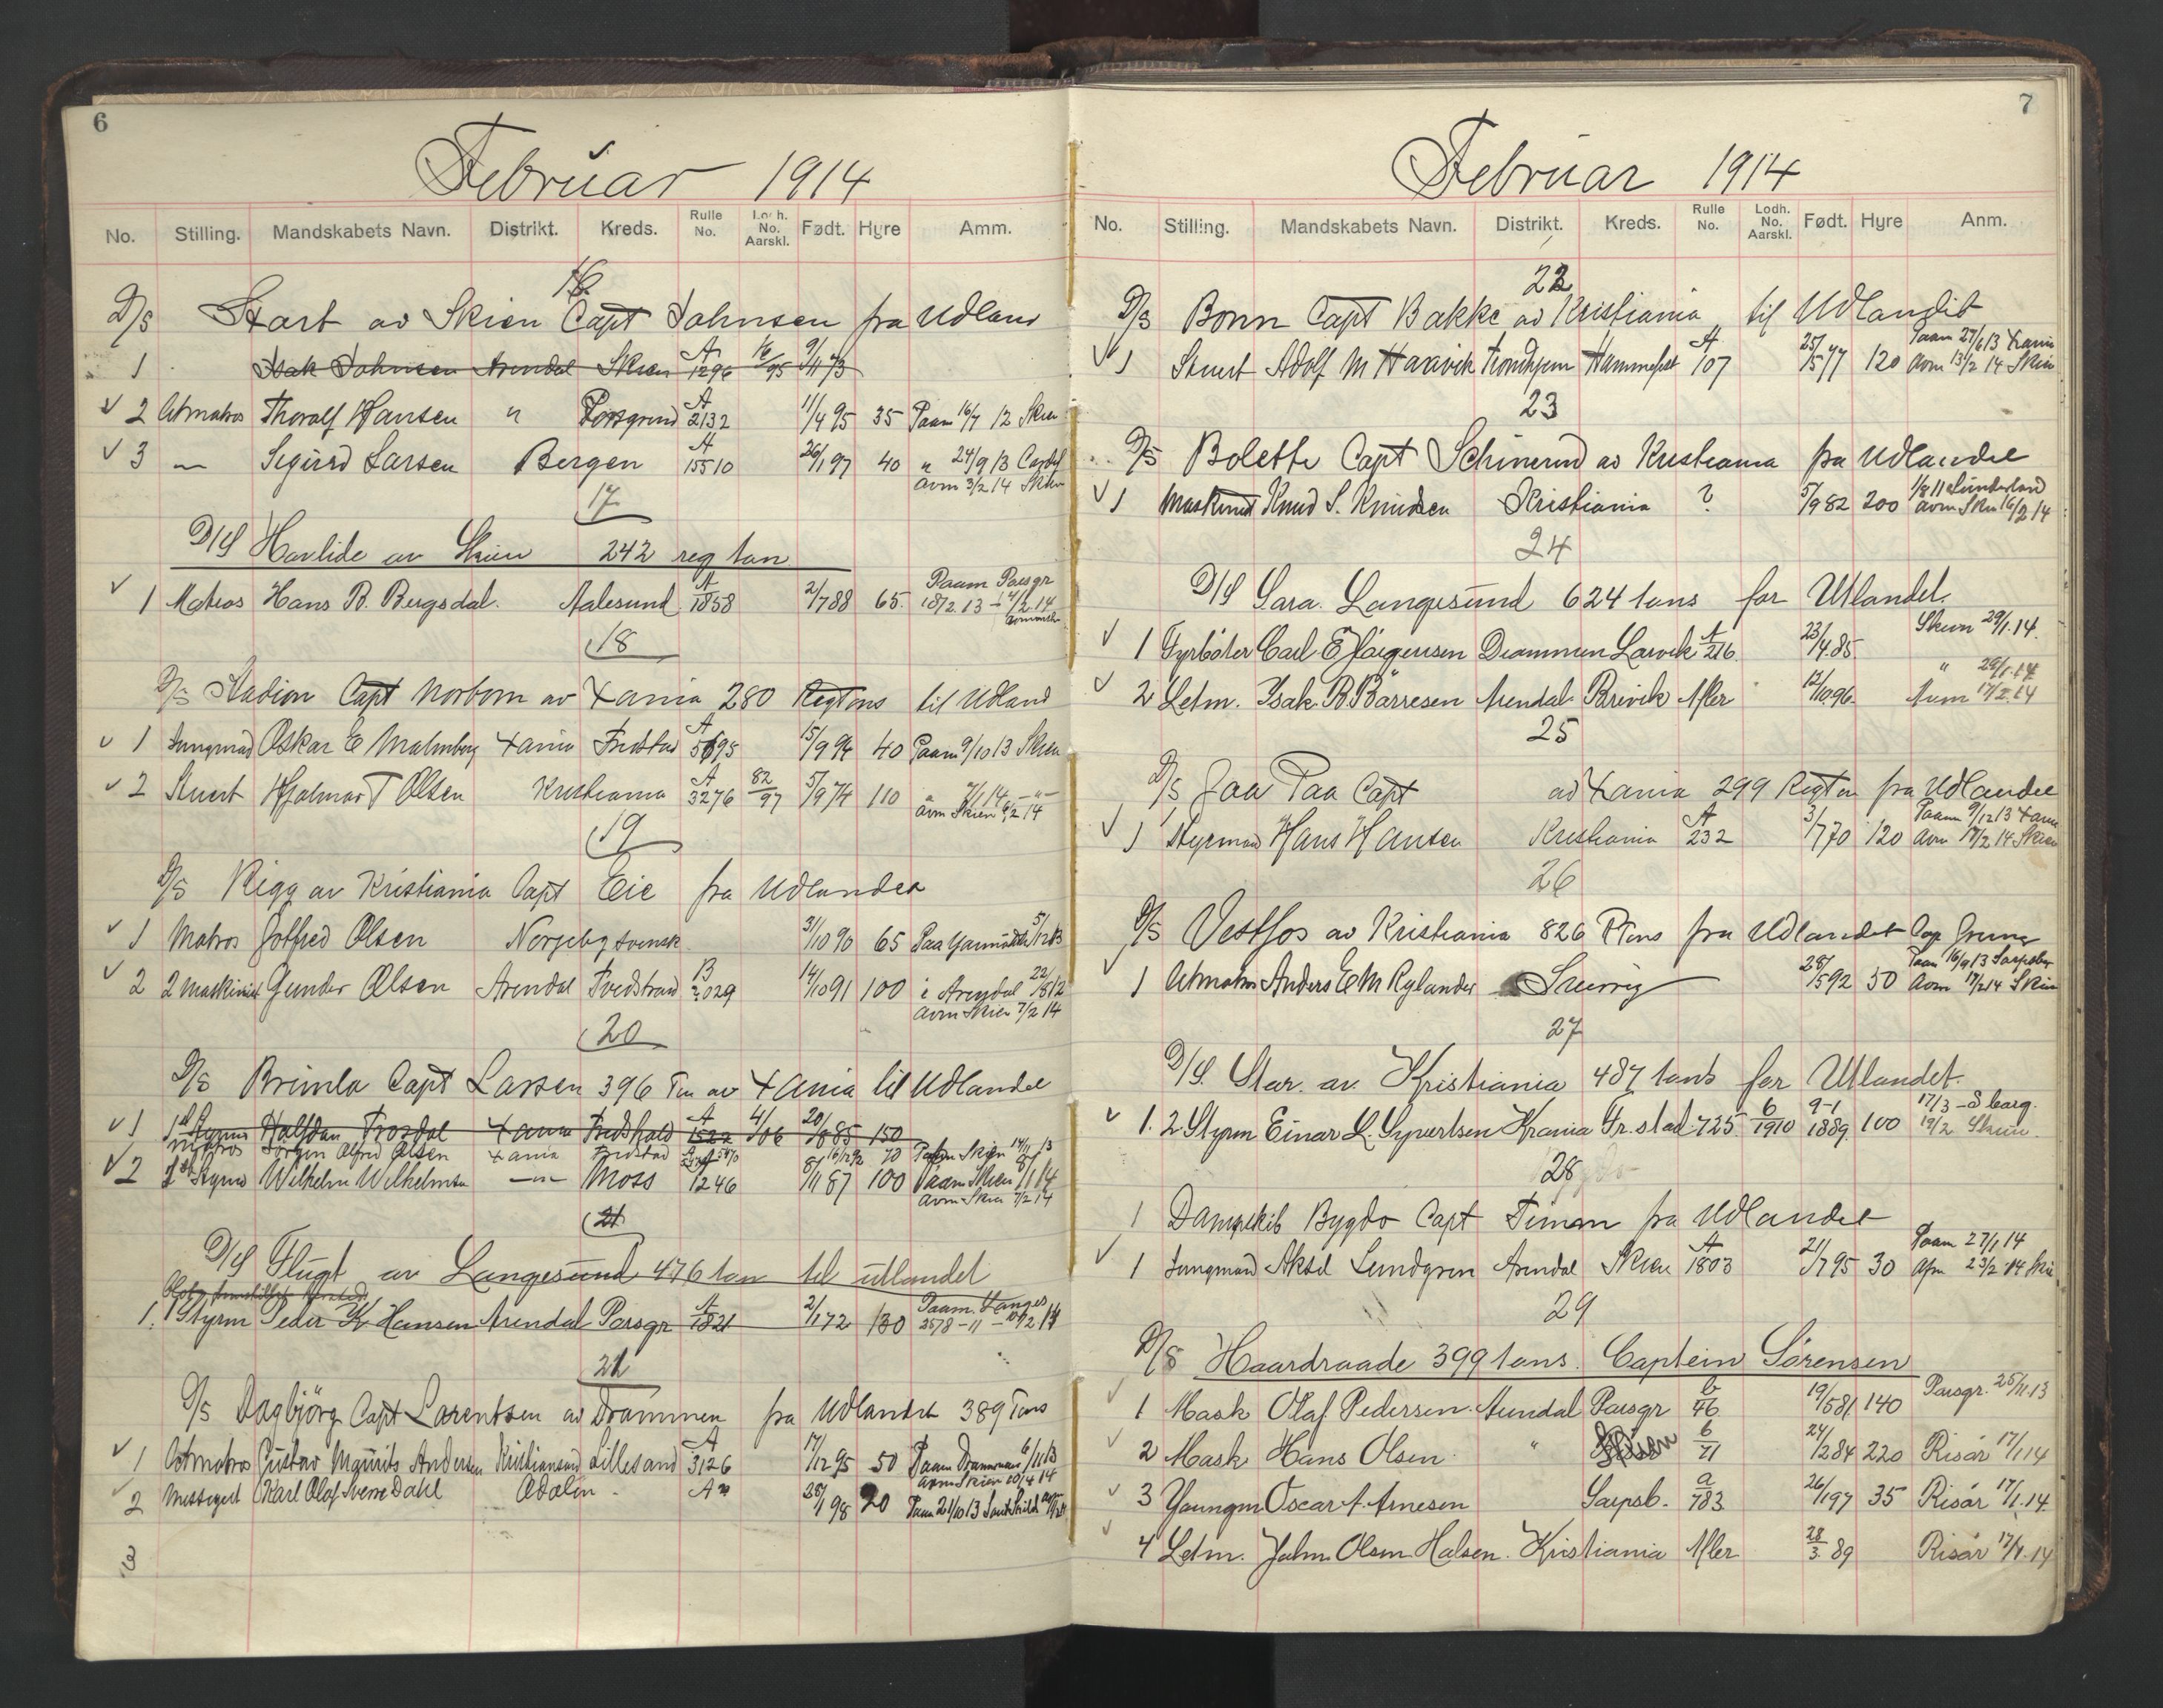 6
Februar 1914
No. Stilling. Mandskabets Navn. Distrikt. Kreds. Rulle No. Lodh. No. Aarskl. Født. Hyre Amm.
16
D/S Start av Skien Capt Johnsen fra Udland
1 Isak Johnsen Arendal Skien A 1296 95
2 Thoralf Hansen " Porsgrund A 2132 11/4 95 35 Paam 16/7 12 Skien
3 — Sigurd Larsen Bergen A 15510 26/1 97 40 " 24/9 13 Cardif
avm 3/2 14 Skien
17
D/S Havlide av Skien 242 reg ton
1 Matros Hans B. Bergsdal. Aalesund A 1858 2/7 88 65. Paam Porsgr
18
D/S Stadion Capt Norbom av Xania 280 Regtons til Udland
1 Jungmad Oskar E Malmberg Xania Fredstad A 5695 15/9 94 40 Paam 9/10 13 Skien
2 Stuert Hjalmar T Olsen Kristiania A 3276 82/97 5/9 74 110
avm Skien 6/2 14
19
D/S Rigg av Kristiania Capt Eie fra Udlandet
1 Matros Gotfred Olsen Norjebg svensk 31/10 90 65
2 2 Maskinist Gunder Olsen Arendal Tvedstrand B 2029 14/10 91 100 i Arendal 22/8 12
avm Skien 7/2 14
20
D/S Brimla Capt Larsen 396 Ton av Xania til Udlandet
1 1st Styrm Halfdan Trosdal Xania Fredshald A 1522 4/06 20/8 85 150
Matros Jørgen Alfred Olsen Xania Fredstad 70 Paam Skien 14/11 13
2 1st Styrm Wilhelm Wilhelmsen —"— Moss A 1246 8/11 87 100 Paam Skien 8/1 14
avm Skien 7/2 14
21
D/S Flugt av Langesund 476 ton til utlandet
1. 1 Styrm Peder K Hansen Arendal Porsgr A 1821 2/1 72 130 Paam. Langes
22
D/S Dagbjörg Capt Lorentsen av Drammen fra Udlandet 389 Tons
1 Gustav Mauritz Andersen Kristiansand Lillesand A 3126 17/12 95 50 Paam Drammen 6/11 13
avm Skien 10/4 14
2 Messegut Karl Olaf Sverre Dahl Adalen A 28/1 98 20
3
7
Februar 1914
No. Stilling. Mandskabets Navn. Distrikt. Kreds. Rulle No. Lodh. No. Aarskl. Født. Hyre Anm.
22
D/S Bonn Capt Bakke av Kristiania til Udlandet
1 Stuert Adolf M Haavik Trondhjem Hammefest A 107 25/5 77 120 Paam 27/6 13 Xania
avm 13/2 14 Skien
23
D/S Bolette Capt av Kristiania fra Udlandet
1 Maskinist Knud S. Knudsen Kristiania ? 5/9 82 200 1/8 11 Sunderland
avm Skien 16/2 14
24
D/S Sara. Langesund 624 tons for Utlandet.
1 Fyrbøter Carl E Jørgensen Drammen Larvik A 216. 23/4 85. Skien 29/1. 14.
2 Letm. Isak B. Børresen Arendal Brevik After 12/10 96. " 29/1. 14
17/2. 14
25
D/S Jaa Paa Capt av Xania 299 Regton fra Udlandet
1 Styrmand Hans Hansen Kristiania A 232 3/7 70 120 Paam 9/12 13 Xania
avm 17/2 14 Skien
26
D/S Vestfos av Kristiania 826 RTons fra Udlandet
1 Anders E M Rylander Sverrig 28/5 92 50 Paam 16/9 13 Sarpsborg
avm 17/2 14 Skien
27
D/S. Star. av. Kristiania 487 tons for Utlandet.
1. 2 Styrm Einar L. Syvertsen Krania Fr. stad 725. 6/1910 9-1 1889. 100 17/3 - 8 barg.
19/2 Skien.
28
1 Dampskib Bygdø Capt Timan fra Udlandet
1 Jungmand Aksel Lundgren Arendal Skien A 1803 21/7 95 30 Paam 27/1 14
Afm 23/2 14 Skie
29
D/S Haardraade 399 tons. Captein Sørensen
1 Mask Olaf Pedersen. Arendal Porsgr b 46 19/5 81. 140 Porsgr. 25/11. 13
2 Mask Hans Olsen. " b 71 24/12 84 220 Risør 17/1 14
3 Youngm Oscar A. Arnesen Sarpsb. a 783 26/1 97 35 Risør 17/1. 14.
4 Letm. Johan Olsen Halsen. Kristiania After 28/3. 89 Risør 17/1. 14